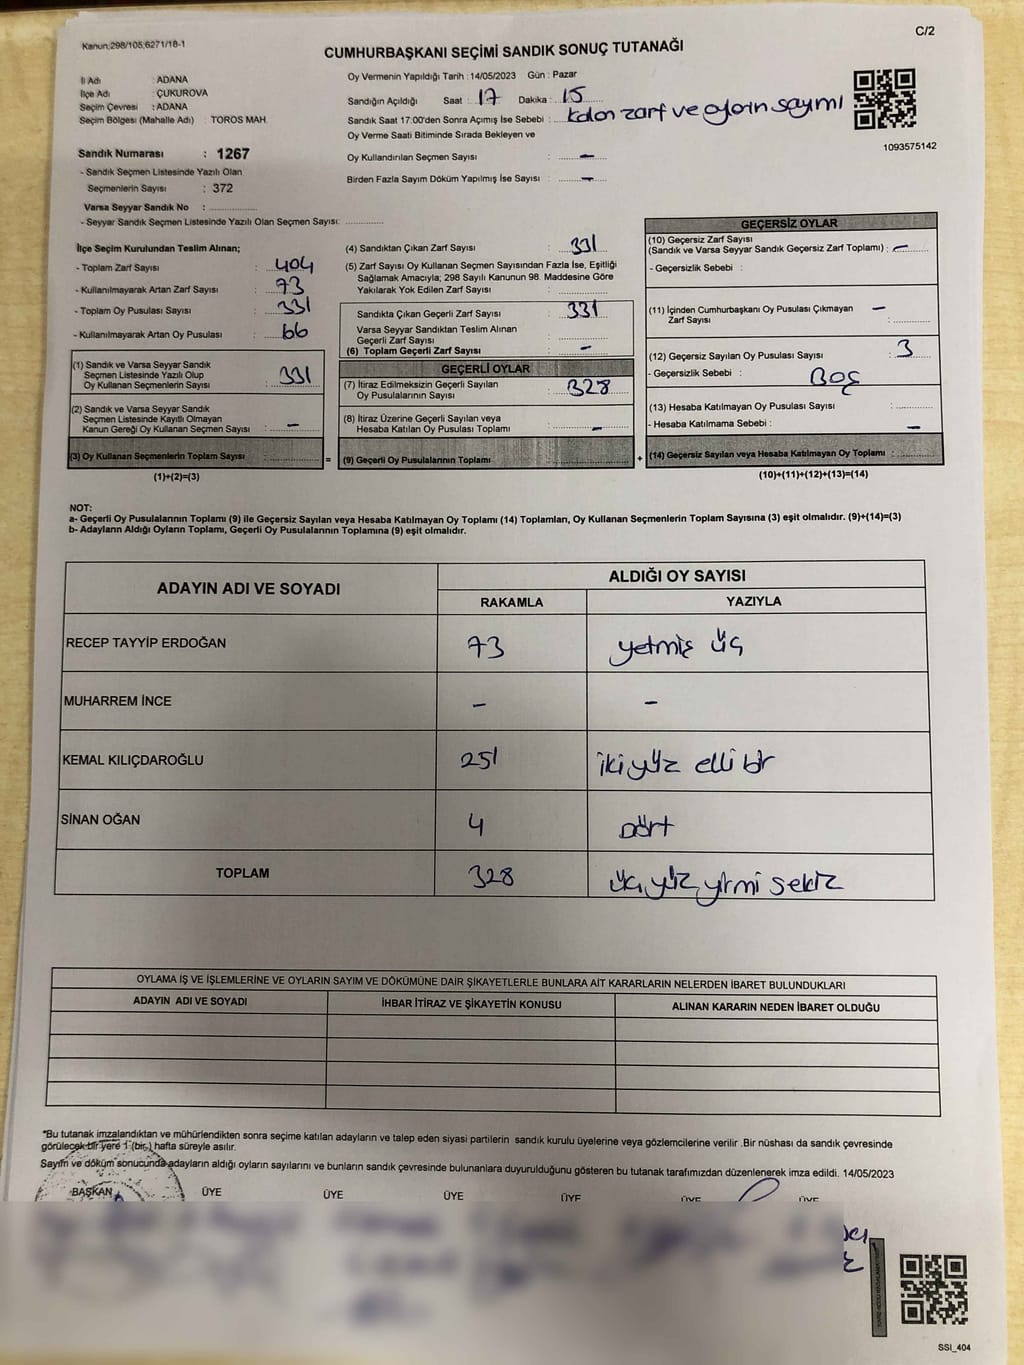 Kanun;298/105;6271/18-1
C/2
CUMHURBAŞKANI SEÇİMİ SANDIK SONUÇ TUTANAĞI
İl Adı : ADANA
İlçe Adı : ÇUKUROVA
Seçim Çevresi : ADANA
Seçim Bölgesi (Mahalle Adı) : TOROS MAH.
Oy Vermenin Yapıldığı Tarih : 14/05/2023 Gün : Pazar
Sandığın Açıldığı Saat : 17 Dakika : 15
Sandık Saat 17:00'den Sonra Açımış İse Sebebi : Kalan zarf ve oyların sayımı
Oy Verme Saati Bitiminde Sırada Bekleyen ve
Oy Kullandırılan Seçmen Sayısı : —
Birden Fazla Sayım Döküm Yapılmış İse Sayısı : —
1093575142
Sandık Numarası : 1267
- Sandık Seçmen Listesinde Yazılı Olan
Seçmenlerin Sayısı : 372
Varsa Seyyar Sandık No :
- Seyyar Sandık Seçmen Listesinde Yazılı Olan Seçmen Sayısı:
İlçe Seçim Kurulundan Teslim Alınan;
- Toplam Zarf Sayısı : 404
- Kullanılmayarak Artan Zarf Sayısı : 73
- Toplam Oy Pusulası Sayısı : 331
- Kullanılmayarak Artan Oy Pusulası : 66
(1) Sandık ve Varsa Seyyar Sandık
Seçmen Listesinde Yazılı Olup
Oy Kullanan Seçmenlerin Sayısı : 331
(2) Sandık ve Varsa Seyyar Sandık
Seçmen Listesinde Kayıtlı Olmayan
Kanun Gereği Oy Kullanan Seçmen Sayısı : —
(3) Oy Kullanan Seçmenlerin Toplam Sayısı :
(1)+(2)=(3)
(4) Sandıktan Çıkan Zarf Sayısı : 331
(5) Zarf Sayısı Oy Kullanan Seçmen Sayısından Fazla İse, Eşitliği
Sağlamak Amacıyla; 298 Sayılı Kanunun 98. Maddesine Göre
Yakılarak Yok Edilen Zarf Sayısı :
Sandıkta Çıkan Geçerli Zarf Sayısı : 331
Varsa Seyyar Sandıktan Teslim Alınan
Geçerli Zarf Sayısı :
(6) Toplam Geçerli Zarf Sayısı : —
GEÇERLİ OYLAR
(7) İtiraz Edilmeksizin Geçerli Sayılan
Oy Pusulalarının Sayısı : 328
(8) İtiraz Üzerine Geçerli Sayılan veya
Hesaba Katılan Oy Pusulası Toplamı : —
= (9) Geçerli Oy Pusulalarının Toplamı :
GEÇERSİZ OYLAR
(10) Geçersiz Zarf Sayısı
(Sandık ve Varsa Seyyar Sandık Geçersiz Zarf Toplamı) : —
- Geçersizlik Sebebi :
(11) İçinden Cumhurbaşkanı Oy Pusulası Çıkmayan —
Zarf Sayısı :
(12) Geçersiz Sayılan Oy Pusulası Sayısı : 3
- Geçersizlik Sebebi : Boş
(13) Hesaba Katılmayan Oy Pusulası Sayısı :
- Hesaba Katılmama Sebebi : —
+ (14) Geçersiz Sayılan veya Hesaba Katılmayan Oy Toplamı :
(10)+(11)+(12)+(13)=(14)
NOT:
a- Geçerli Oy Pusulalarının Toplamı (9) ile Geçersiz Sayılan veya Hesaba Katılmayan Oy Toplamı (14) Toplamları, Oy Kullanan Seçmenlerin Toplam Sayısına (3) eşit olmalıdır. (9)+(14)=(3)
b- Adayların Aldığı Oyların Toplamı, Geçerli Oy Pusulalarının Toplamına (9) eşit olmalıdır.
ADAYIN ADI VE SOYADI
ALDIĞI OY SAYISI
RAKAMLA YAZIYLA
RECEP TAYYİP ERDOĞAN 73 yetmiş üç
MUHARREM İNCE - -
KEMAL KILIÇDAROĞLU 251 iki yüz elli bir
SİNAN OĞAN 4 Dört
TOPLAM 328 üç yüz yirmi sekiz
OYLAMA İŞ VE İŞLEMLERİNE VE OYLARIN SAYIM VE DÖKÜMÜNE DAİR ŞİKAYETLERLE BUNLARA AİT KARARLARIN NELERDEN İBARET BULUNDUKLARI
ADAYIN ADI VE SOYADI İHBAR İTİRAZ VE ŞİKAYETİN KONUSU ALINAN KARARIN NEDEN İBARET OLDUĞU
*Bu tutanak imzalandıktan ve mühürlendikten sonra seçime katılan adayların ve talep eden siyasi partilerin sandık kurulu üyelerine veya gözlemcilerine verilir .Bir nüshası da sandık çevresinde
görülecek bir yere 1 (bir.) hafta süreyle asılır.
Sayım ve döküm sonucunda adayların aldığı oyların sayılarını ve bunların sandık çevresinde bulunanlara duyurulduğunu gösteren bu tutanak tarafımızdan düzenlenerek imza edildi. 14/05/2023
BAŞKAN ÜYE ÜYE ÜYE ÜYE ÜYE ÜYE
SSI_404